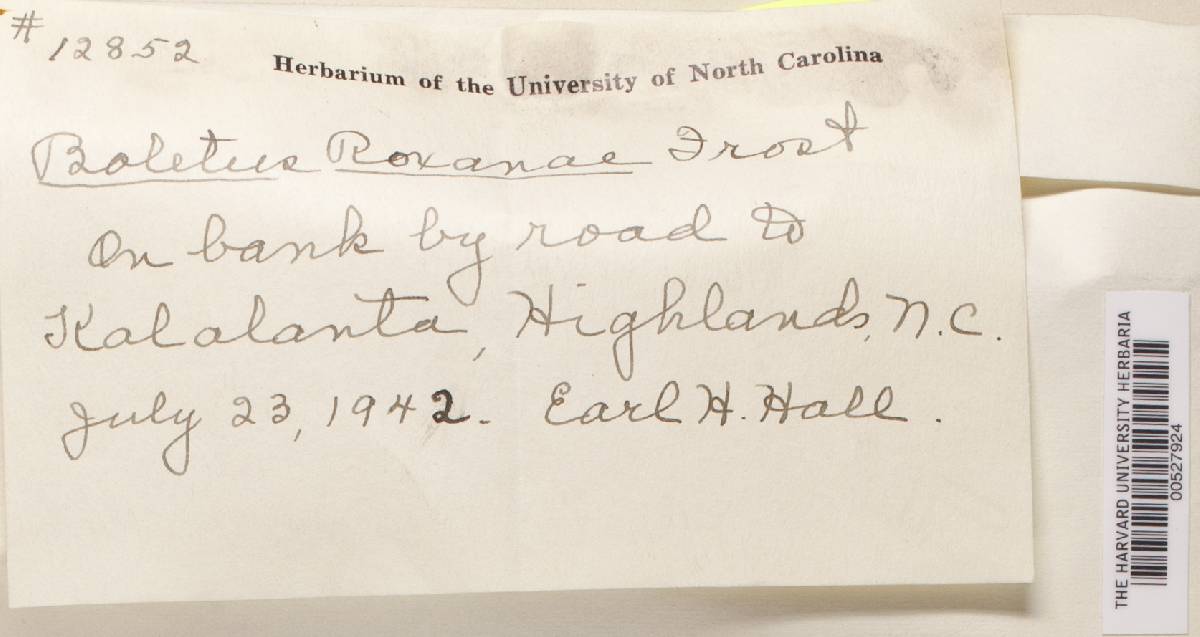 # 12852
Herbarium of the University of North Carolina
Boletus Roxanae Frost
On bank by road to
Kalalanta, Highlands, N.C.
July 23, 1942. Earl H. Hall.
THE HARVARD UNIVERSITY HERBARIA
00527924